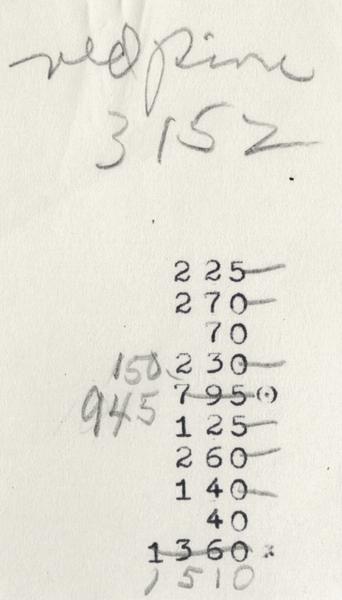 red pine
3152
2 25
2 70
70
150 2 30
945 7 95
1 25
2 60
1 40
40
1 3 60 *
1510